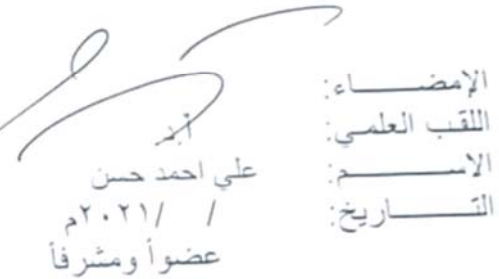 الإمضـــــــاء:
اللقب العلمي: أ.د
الاســـــــم: علي احمد حسن
التـــــــاريخ: / /٢٠٢١م
عضواً ومشرفاً